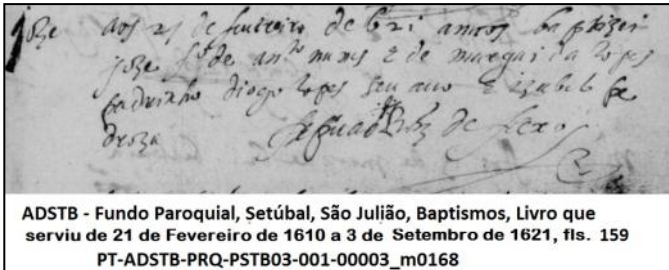 Joze aos 25 de fevreiro de 621 annos baptizei
Joze fº de antº nunes E de margaida lopes
padrinho diogo lopes seu avo E izabel pe
droza
de
ADSTB - Fundo Paroquial, Setúbal, São Julião, Baptismos, Livro que
serviu de 21 de Fevereiro de 1610 a 3 de Setembro de 1621, fls. 159
PT-ADSTB-PRQ-PSTB03-001-00003_m0168